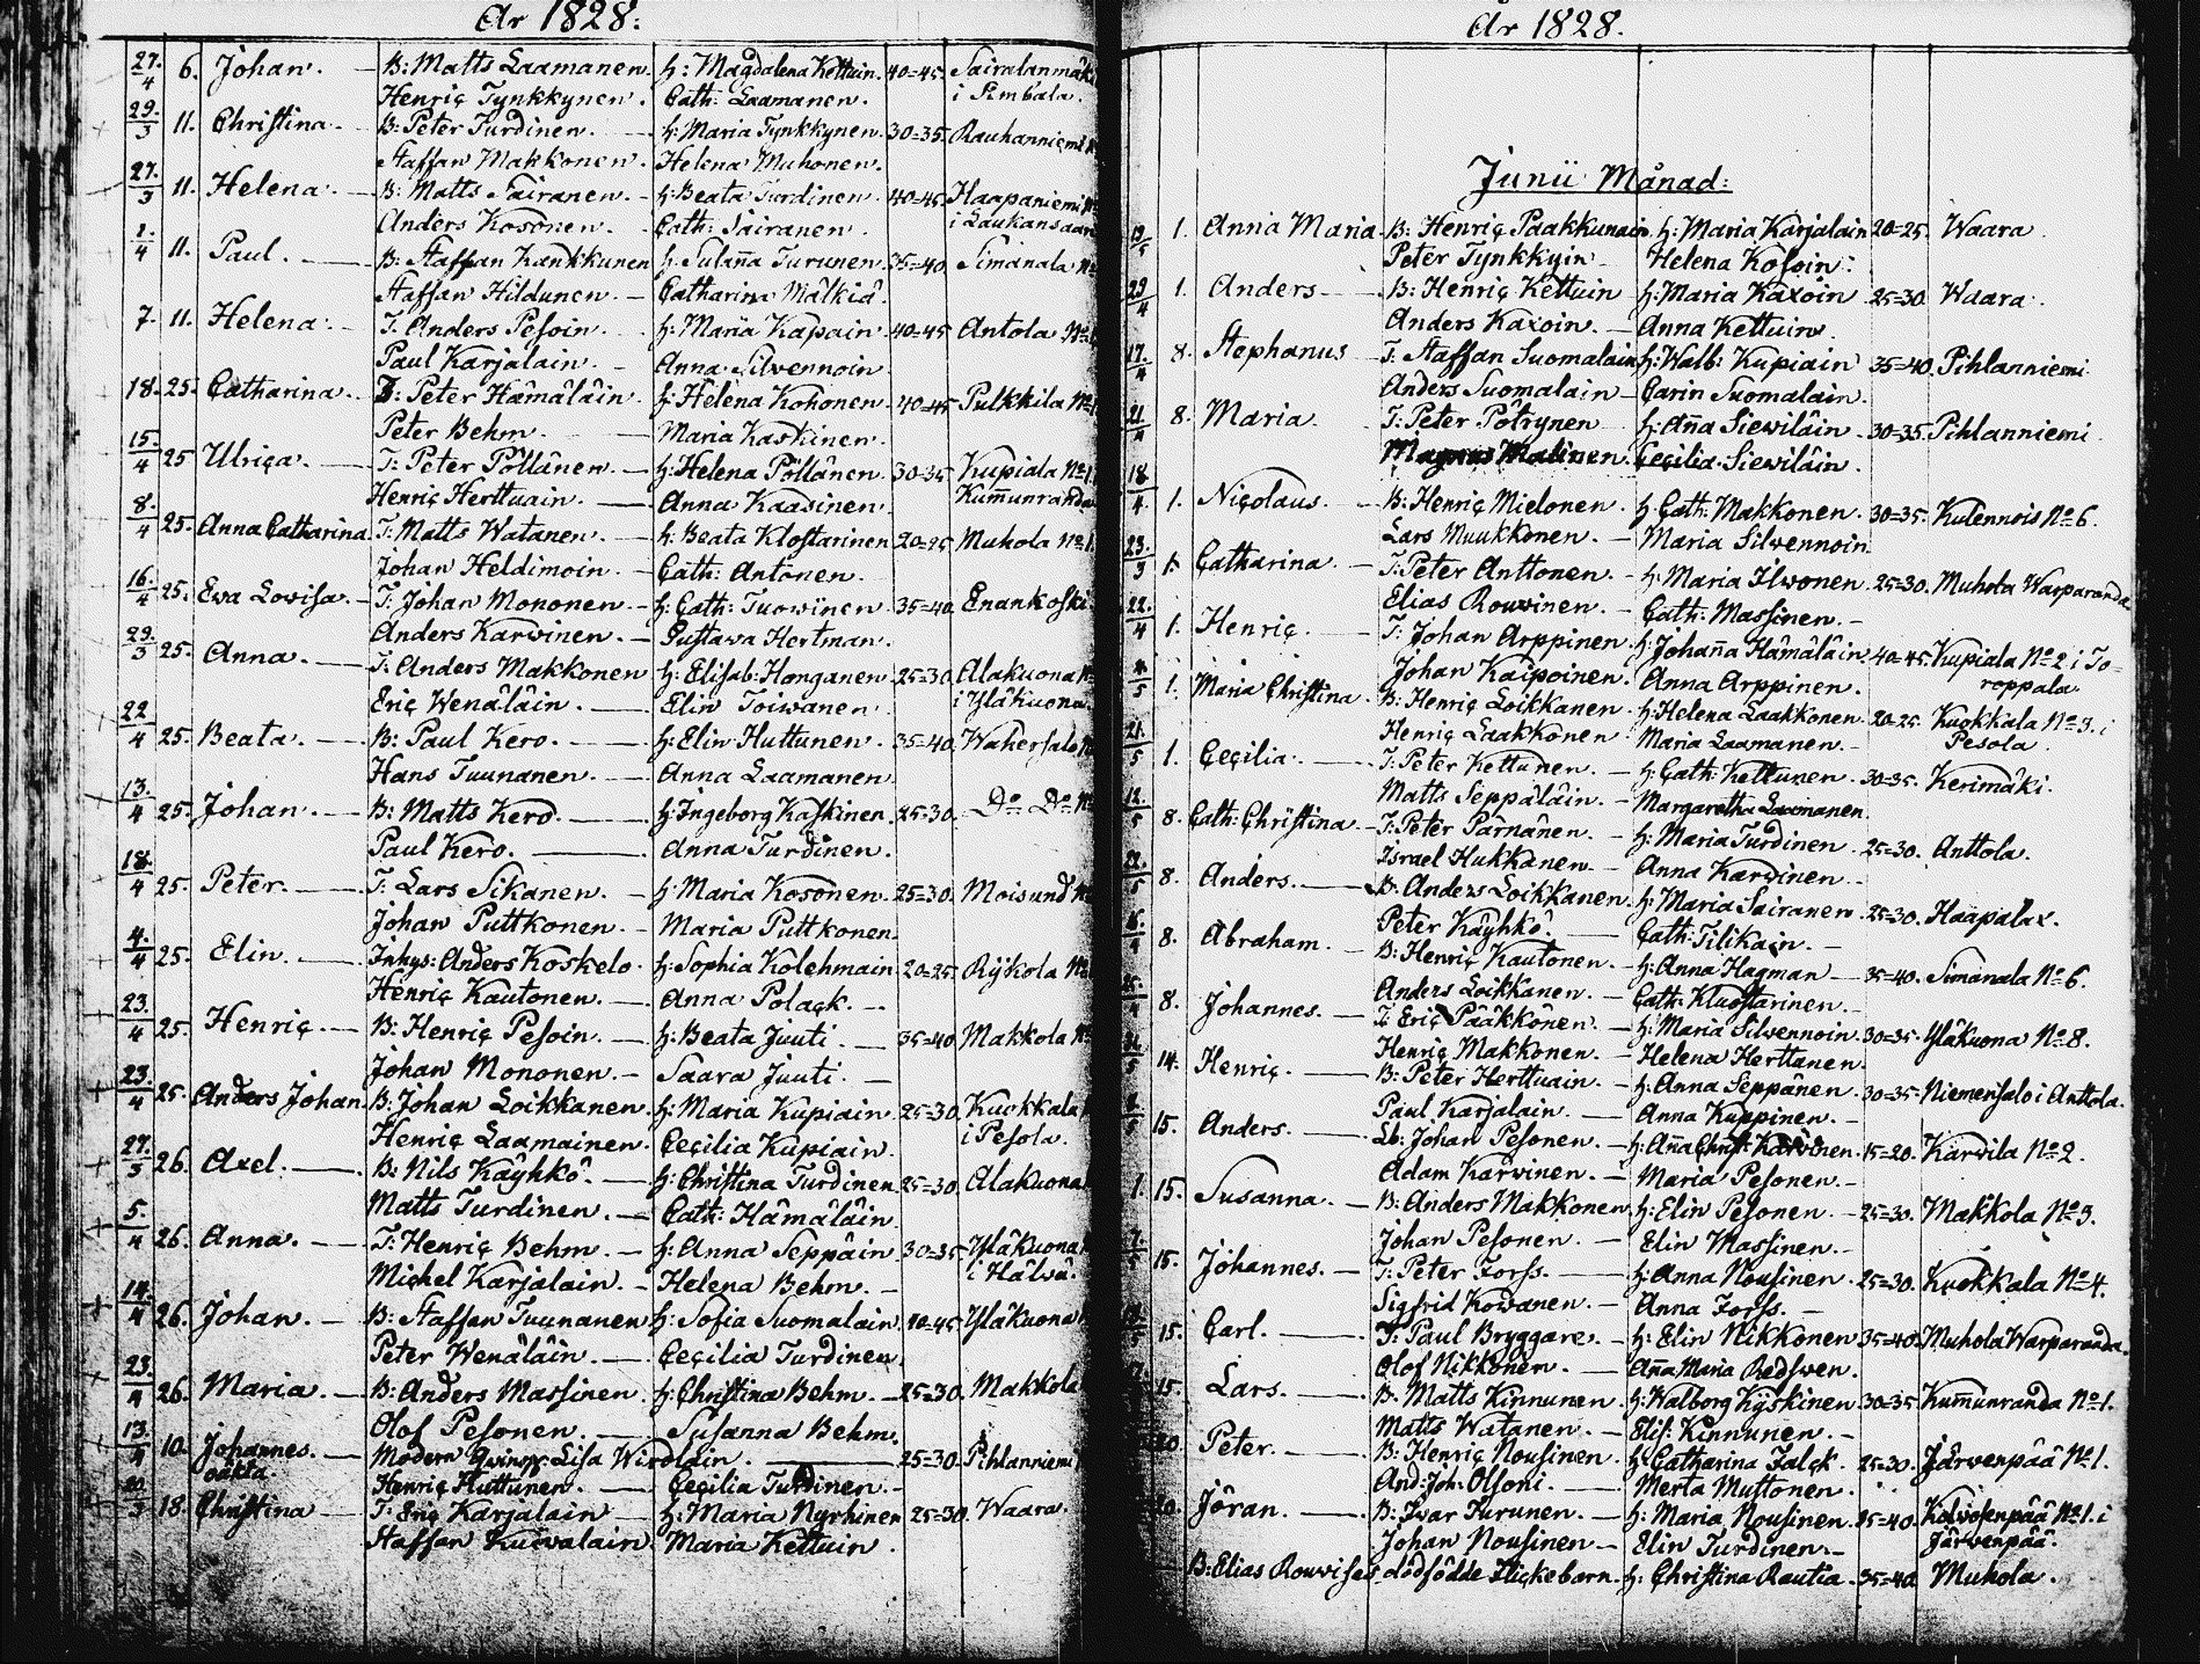 År 1828:
27./4 6. Johan. B: Matts Laamanen. h: Magdalena Kettuin. 40=45. Sairalanmäki
Henric Tynkkynen. Cath: Laamanen. i Simbala.
29./3 11. Christina. B: Peter Turdinen. h: Maria Tynkkynen. 30=35. Rauhanniemi
Staffan Makkonen. Helena Muhonen.
27./3 11. Helena. B: Matts Sairanen. h: Beata Turdinen. 40=45. Haapaniemi
Anders Kosonen. Cath: Sairanen. i Laukansaari
1./4 11. Paul. B: Staffan Kankkunen h. Susanna Turunen. 35=40. Simanala No
Staffan Hildunen. Catharina Mälkiä.
7. 11. Helena. T: Anders Pesoin. h: Maria Kapain. 40=45 Antola No
Paul Karjalain. Anna Silvennoin
18. 25. Catharina. T: Peter Hämäläin. h: Helena Kohonen. 40=45 Pulkkila No
Peter Behm. Maria Kaskinen.
15./4 25 Ulrica. T: Peter Pöllänen. h: Helena Pöllänen. 30=35 Kupiala No 1.
Henric Herttuain. Anna Kaasinen. Kum̄unranda
8./4 25. Anna Catharina. T: Matts Watanen. h: Beata Klostarinen 20=25 Muhola No 1.
Johan Heldimoin. Cath: Antonen.
16./4 25. Ewa Lovisa. T: Johan Mononen. h: Cath: Tuowinen. 35=40. Enankoski.
Anders Karwinen. Gustava Hertman.
29./3 25. Anna. T: Anders Makkonen h: Elisab: Honganen. 25=30. Alakuona No
Eric Wenäläin. Elin Toiwanen. i Yläkuona.
22/4 25. Beata. B: Paul Kero. h: Elin Huttunen. 35=40. Wahersalo
Hans Tuunanen. Anna Laamanen.
13./4 25. Johan. B: Matts Kero. h: Ingeborg Kaskinen. 25=30. Do Do No
Paul Kero. Anna Turdinen.
18./4 25. Peter. T: Lars Sikanen. h: Maria Kosonen. 25=30. Moisund No
Johan Puttkonen. Maria Puttkonen.
4./4 25. Elin. Inhys: Anders Koskelo. h: Sophia Kolehmain 20=25. Ryökola No
Henric Kautonen. Anna Polack.
23./4 25. Henric. B: Henric Pesoin. h: Beata Juuti. 35=40 Makkola No
Johan Mononen. Saara Juuti.
23./4 25. Anders Johan. B: Johan Loikkanen. h: Maria Kupiain. 25=30. Kuokkala
Henric Laamainen. Cecilia Kupiain. i Pesola.
27./3 26. Axel. B: Nils Käyhkö. h: Christina Turdinen. 25=30. Alakuona
Matts Turdinen. Cath: Hämäläin.
5./4 26. Anna. T: Henric Behm. h: Anna Seppäin. 30=35. Yläkuona
Michel Karjalain. Helena Behm. i Hälvä.
14./4 26. Johan. B: Staffan Tuunanen h: Sofia Suomalain. 40=45. Yläkuona
Peter Wenäläin. Cecilia Turdinen.
23./4 26. Maria. B: Anders Massinen. h: Christina Behm. 25=30. Makkola
Olof Pesonen. Susanna Behm.
13./4 10. Johannes. Modern Qvinsp: Lisa Wirolain. 25=30. Pihlanniemi
oäkta. Henric Huttunen. Cecilia Turdinen.
20./3 18. Christina T: Eric Karjalain h: Maria Nyrhinen 25=30. Waara.
Staffan Kuivalain. Maria Kettuin.
År 1828.
Junii Månad:
19/5 1. Anna Maria. B: Henric Paakkunain. h: Maria Karjalain 20=25. Waara.
Peter Tynkkyin Helena Kosoin.
29/4 1. Anders B: Henric Kettuin h: Maria Kaxoin 25=30. Waara.
Anders Kaxoin. Anna Kettuin.
17./4 8. Stephanus T: Staffan Suomalain h: Walb: Kupiain 35=40. Pihlanniemi.
Anders Suomalain Carin Suomalain.
21./4 8. Maria. T: Peter Pötrynen h: An̄a Siewiläin. 30=35. Pihlanniemi.
Magnus Malinen. Cecilia Siewiläin.
18/4. 1. Nicolaus. B: Henric Mielonen. h: Cath: Makkonen. 30=35. Kulennois No 6.
Lars Muukkonen. Maria Silvennoin.
23./3 1. Catharina. T: Peter Anttonen. h: Maria Ilwonen. 25=30. Muhola Warparanda.
Elias Rouvinen. Cath: Massinen.
22./4 1. Henric. T: Johan Arppinen. h: Johan̄a Hämäläin 40=45. Kupiala No 2 i To=
Johan Kaipoinen. Anna Arppinen. roppala.
4./5 1. Maria Christina. B: Henric Loikkanen. h: Helena Laakkonen. 20=25. Kuokkala No 3. i
Henric Laakkonen. Maria Laamanen. Pesola.
21./5 1. Cecilia. T: Peter Kettunen. h: Cath: Kettunen. 30=35. Kerimäki.
Matts Seppäläin. Margaretha Laamanen.
12./5 8. Cath: Christina. T: Peter Pärnänen. h: Maria Turdinen. 25=30. Anttola.
Israel Hukkanen. Anna Karvinen.
22./5 8. Anders. B: Anders Loikkanen. h: Maria Sairanen. 25=30. Haapalax.
Peter Käyhkö. Cath: Tilikain.
16./4 8. Abraham. B: Henric Kautonen. h: Anna Hagman 35=40. Simanala No 6.
Anders Loikkanen. Cath: Kluostarinen.
25./4 8. Johannes. T: Eric Pääkkönen. h: Maria Silvennoin. 30=35. Yläkuona No 8.
Henric Makkonen. Helena Herttanen.
14. Henric. B: Peter Herttuain. h: Anna Seppänen. 30=35. Niemensalo i Anttola.
Paul Karjalain. Anna Kuppinen.
15. Anders. Lb: Johan Pesonen. h: An̄a Christ: Karvinen. 15=20. Karvila No 2.
Adam Karvinen. Maria Pesonen.
1. 15. Susanna. B: Anders Makkonen. h: Elin Pesonen. 25=30. Makkola No 3.
Johan Pesonen. Elin Massinen.
7./5 15. Johannes. T: Peter Forss. h: Anna Nousinen. 25=30. Kuokkala No 4.
Sigfrid Kowanen. Anna Forss.
15. Carl. T: Paul Bryggare. h: Elin Nikkonen 35=40. Muhola Warparanda.
Olof Nikkonen. An̄a Maria Redswen.
15. Lars. B: Matts Kinnunen. h: Walborg Kyskinen. 30=35 Kum̄unranda No 1.
Matts Watanen. Elis: Kinnunen.
20. Peter. B: Henric Nousinen. h: Catharina Falck. 25=30. Järvenpää No 1.
And: Joh: Olsoni. Merta Muttonen.
20. Jöran. B: Ivar Turunen. h: Maria Nousinen. 35=40. Kolvosenpää No 1. i
Johan Nousinen Elin Turdinen. Järvenpää.
B: Elias Rouvises dödfödde Flickebarn. h: Christina Rautia. 35=40. Muhola.